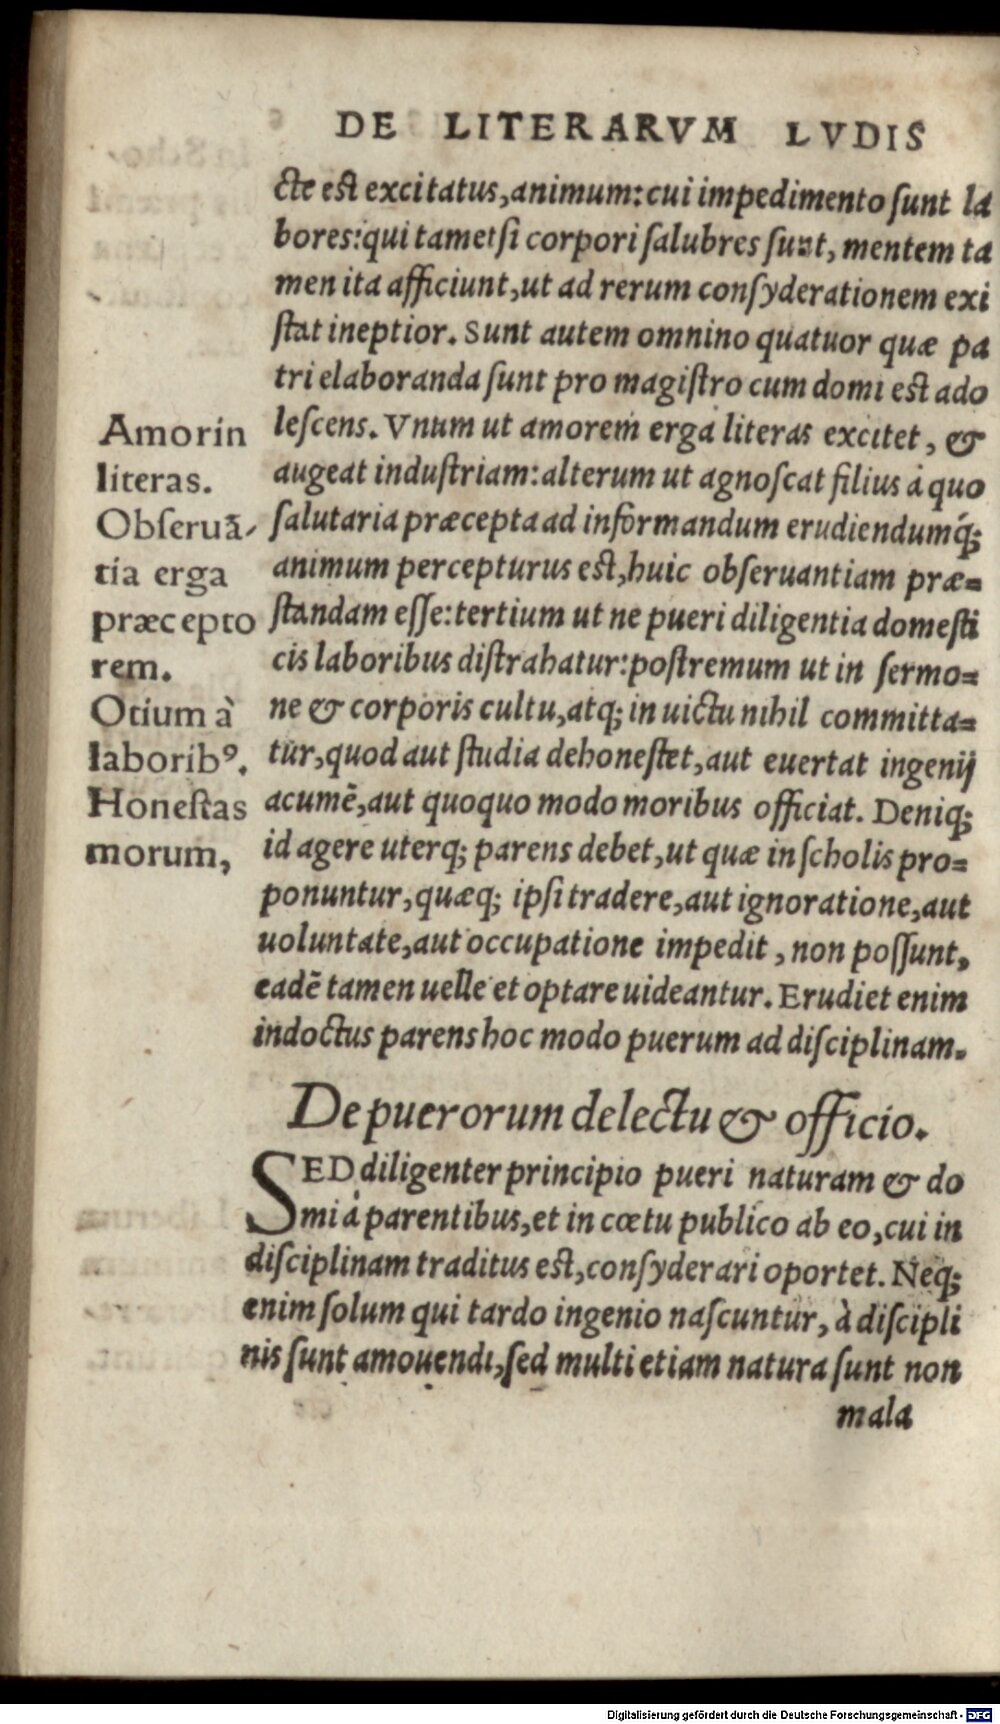 DE LITERARVM LVDIS
cte est excitatus, animum: cui impedimento sunt la
bores: qui tametsi corpori salubres sunt, mentem ta
men ita afficiunt, ut ad rerum consyderationem exi
stat ineptior. Sunt autem omnino quatuor quæ pa
tri elaboranda sunt pro magistro cum domi est ado
lescens. Vnum ut amorem erga literas excitet, &
augeat industriam: alterum ut agnoscat filius à quo
salutaria præcepta ad informandum erudiendumq́;
animum percepturus est, huic obseruantiam præ=
standam esse: tertium ut ne pueri diligentia domesti
cis laboribus distrahatur: postremum ut in sermo=
ne & corporis cultu, atq; in uictu nihil committa=
tur, quod aut studia dehonestet, aut euertat ingenij
acumē, aut quoquo modo moribus officiat. Deniq;
id agere uterq; parens debet, ut quæ in scholis pro=
ponuntur, quæq; ipsi tradere, aut ignoratione, aut
uoluntate, aut occupatione impedit, non possunt,
eadē tamen uelle et optare uideantur. Erudiet enim
indoctus parens hoc modo puerum ad disciplinam.
Amor in
literas.
Obseruā-
tia erga
præcepto
rem.
Otium à
laborib⁹.
Honestas
morum,
De puerorum delectu & officio.
SED diligenter principio pueri naturam & do
mi à parentibus, et in cœtu publico ab eo, cui in
disciplinam traditus est, consyderari oportet. Neq;
enim solum qui tardo ingenio nascuntur, à discipli
nis sunt amouendi, sed multi etiam natura sunt non
mala
Digitalisierung gefördert durch die Deutsche Forschungsgemeinschaft - DFG